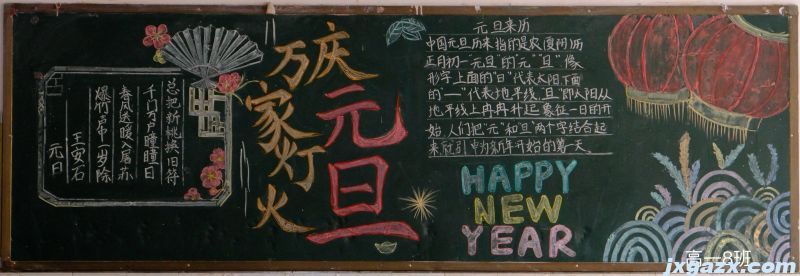 元日
王安石
爆竹声中一岁除
春风送暖入屠苏
千门万户曈曈日
总把新桃换旧符
万家灯火
庆元旦
元旦来历
中国元旦历来指的是农(夏阴)历
正月初一元旦"的"元""旦"像
形字上面的"日"代表太阳下面
的"一"代表地平线"旦"即太阳从
地平线上冉冉升起象征一日的开
始人们把"元"和旦"两个字结合起
来就引申为新年开始的第一天
HAPPY
NEW
YEAR
高一8班
ixgazx.com